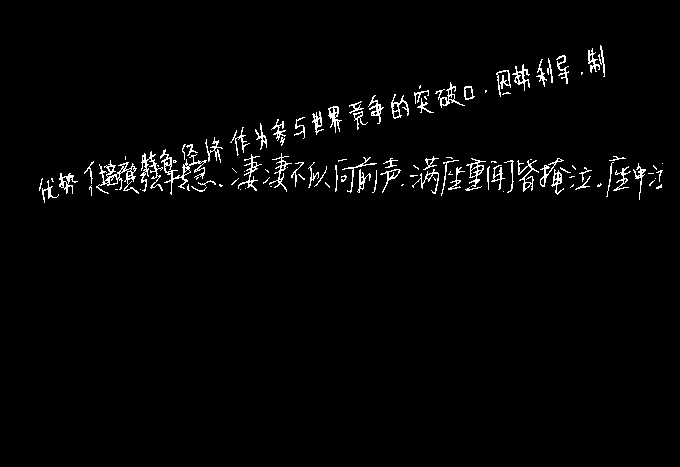 优势 经济作为参与世界竞争的突破口.因势利导.制
弦急.凄凄不似向前声.满座重闻皆掩泣。座中泣